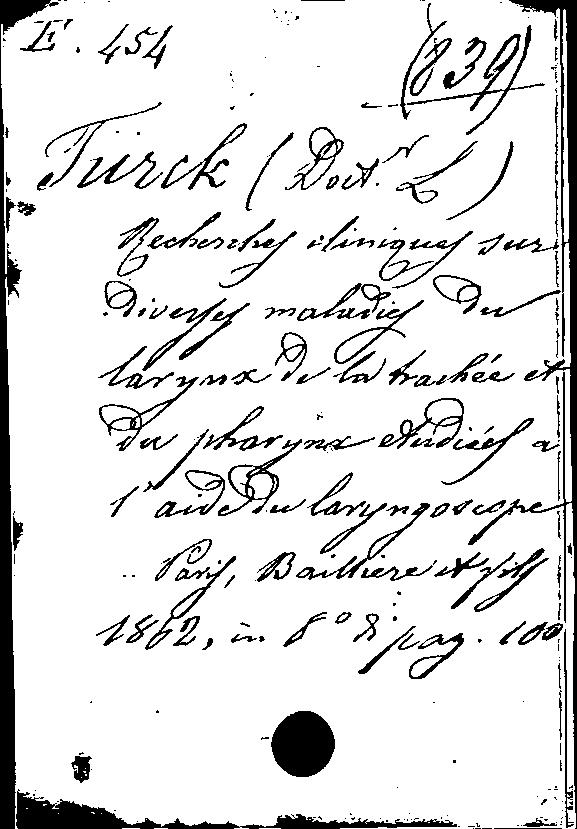 E. 454
(839)
Türck (Doct.r L)
Recherches cliniques sur
diverses maladies du
larynx de la trachée et
du pharynx etudiées a
l'aide du laryngoscope
Paris, Bailliere et fils
1862, in 8° di pag. 100